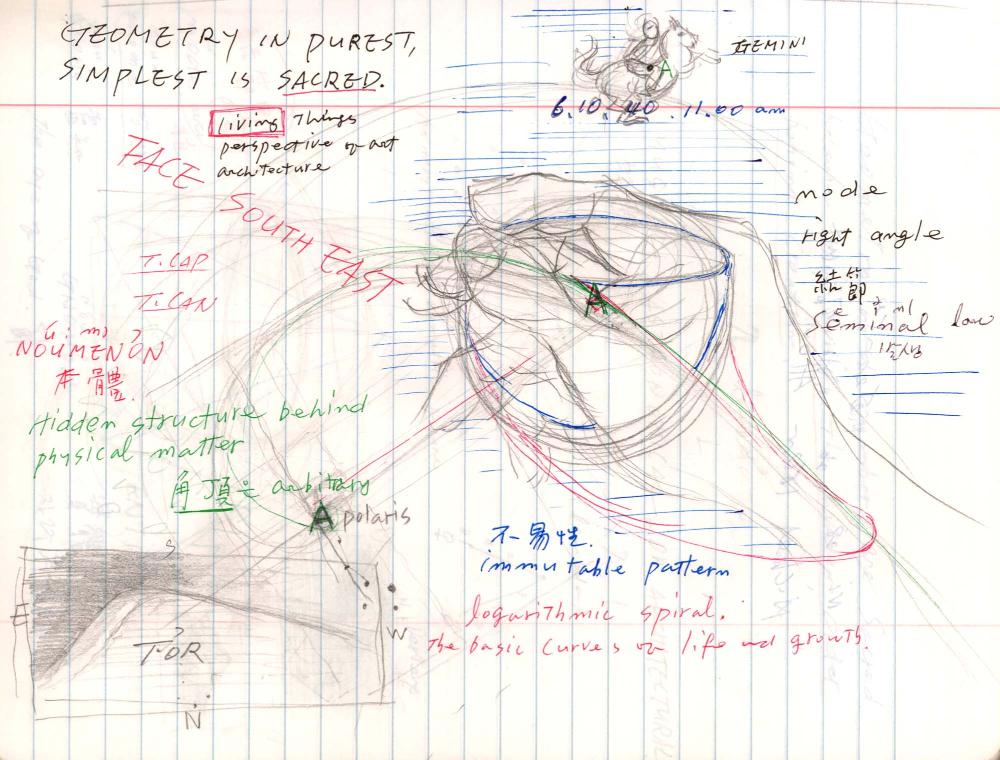 GEOMETRY IN PUREST,
SIMPLEST IS SACRED.
living things
perspective of art
architecture
GEMINI
A
6.10.40.11.00 am
FACE
SOUTH EAST
T.CAP
T.CAN
NOUMENON
本體
Hidden structure behind
physical matter
角頂은 arbitrary
A polaris
A
node
right angle
結節
Seminal law
발생
不易性.
immutable pattern
logarithmic spiral.
The basic curves of life and growth.
S
E
W
N